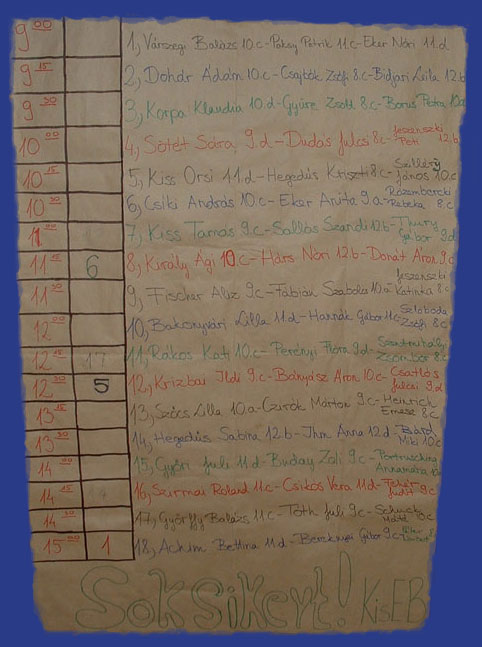 9 00 1, Várszegi Balázs 10.c - Paksy Patrik 11.c - Eker Nóri 11.d
9 15 2, Dohár Ádám 10.c - Csajbók Zsófi 8.c - Bidjari Leila 12.b
9 30 3, Korpa Klaudia 10.d - Gyüre Zsolt 8.c - Borus Petra 10.a
10 00 4, Sötét Sára 9.d - Dudás Julcsi 8.c - Jeszenszki Peti 12.b
10 15 5, Kiss Orsi 11.d - Hegedűs Kriszti 8.c - János 10.c
10 30 6, Csiki András 10.c - Eker Anita 9.a - Rebeka 8.c
11 00 7, Kiss Tamás 9.c - Sallós Szandi 12.b - Thury Gábor 9.d
11 15 6 8, Király Ági 10.c - Hárs Nóri 12.b - Donát Áron 9.c
11 30 9, Fischer Aliz 9.c - Fábián Szabolcs 10.a - Jeszenszki Katinka 8.c
12 00 10, Bakonyvári Lilla 11.d - Hannák Gábor 11.c - Szloboda Zsófi 8.c
12 15 17 11, Rákos Kati 10.c - Perényi Flóra 9.d - Zsombor 8.c
12 30 5 12, Krizbai Ildi 9.c - Bányász Áron 10.c - Csatlós Julcsi 9.d
13 15 13, Szőcs Lilla 10.a - Czirók Márton 9.c - Heinrich Emese 8.c
13 30 14, Hegedűs Sabina 12.b - Ihm Anna 12.d - Miki 10.c
14 00 15, Győri Juli 11.d - Buday Zoli 9.c - Annamária 10.a
14 15 16, Szirmai Roland 11.c - Csikós Vera 11.d - Fehér Judit 9.c
14 30 17, Györffy Balázs 11.c - Tóth Juli 9.c - 8.c
15 00 1 18, Achim Bettina 11.d - Bereknyei Gábor 9.c
Sok sikert! KisEB